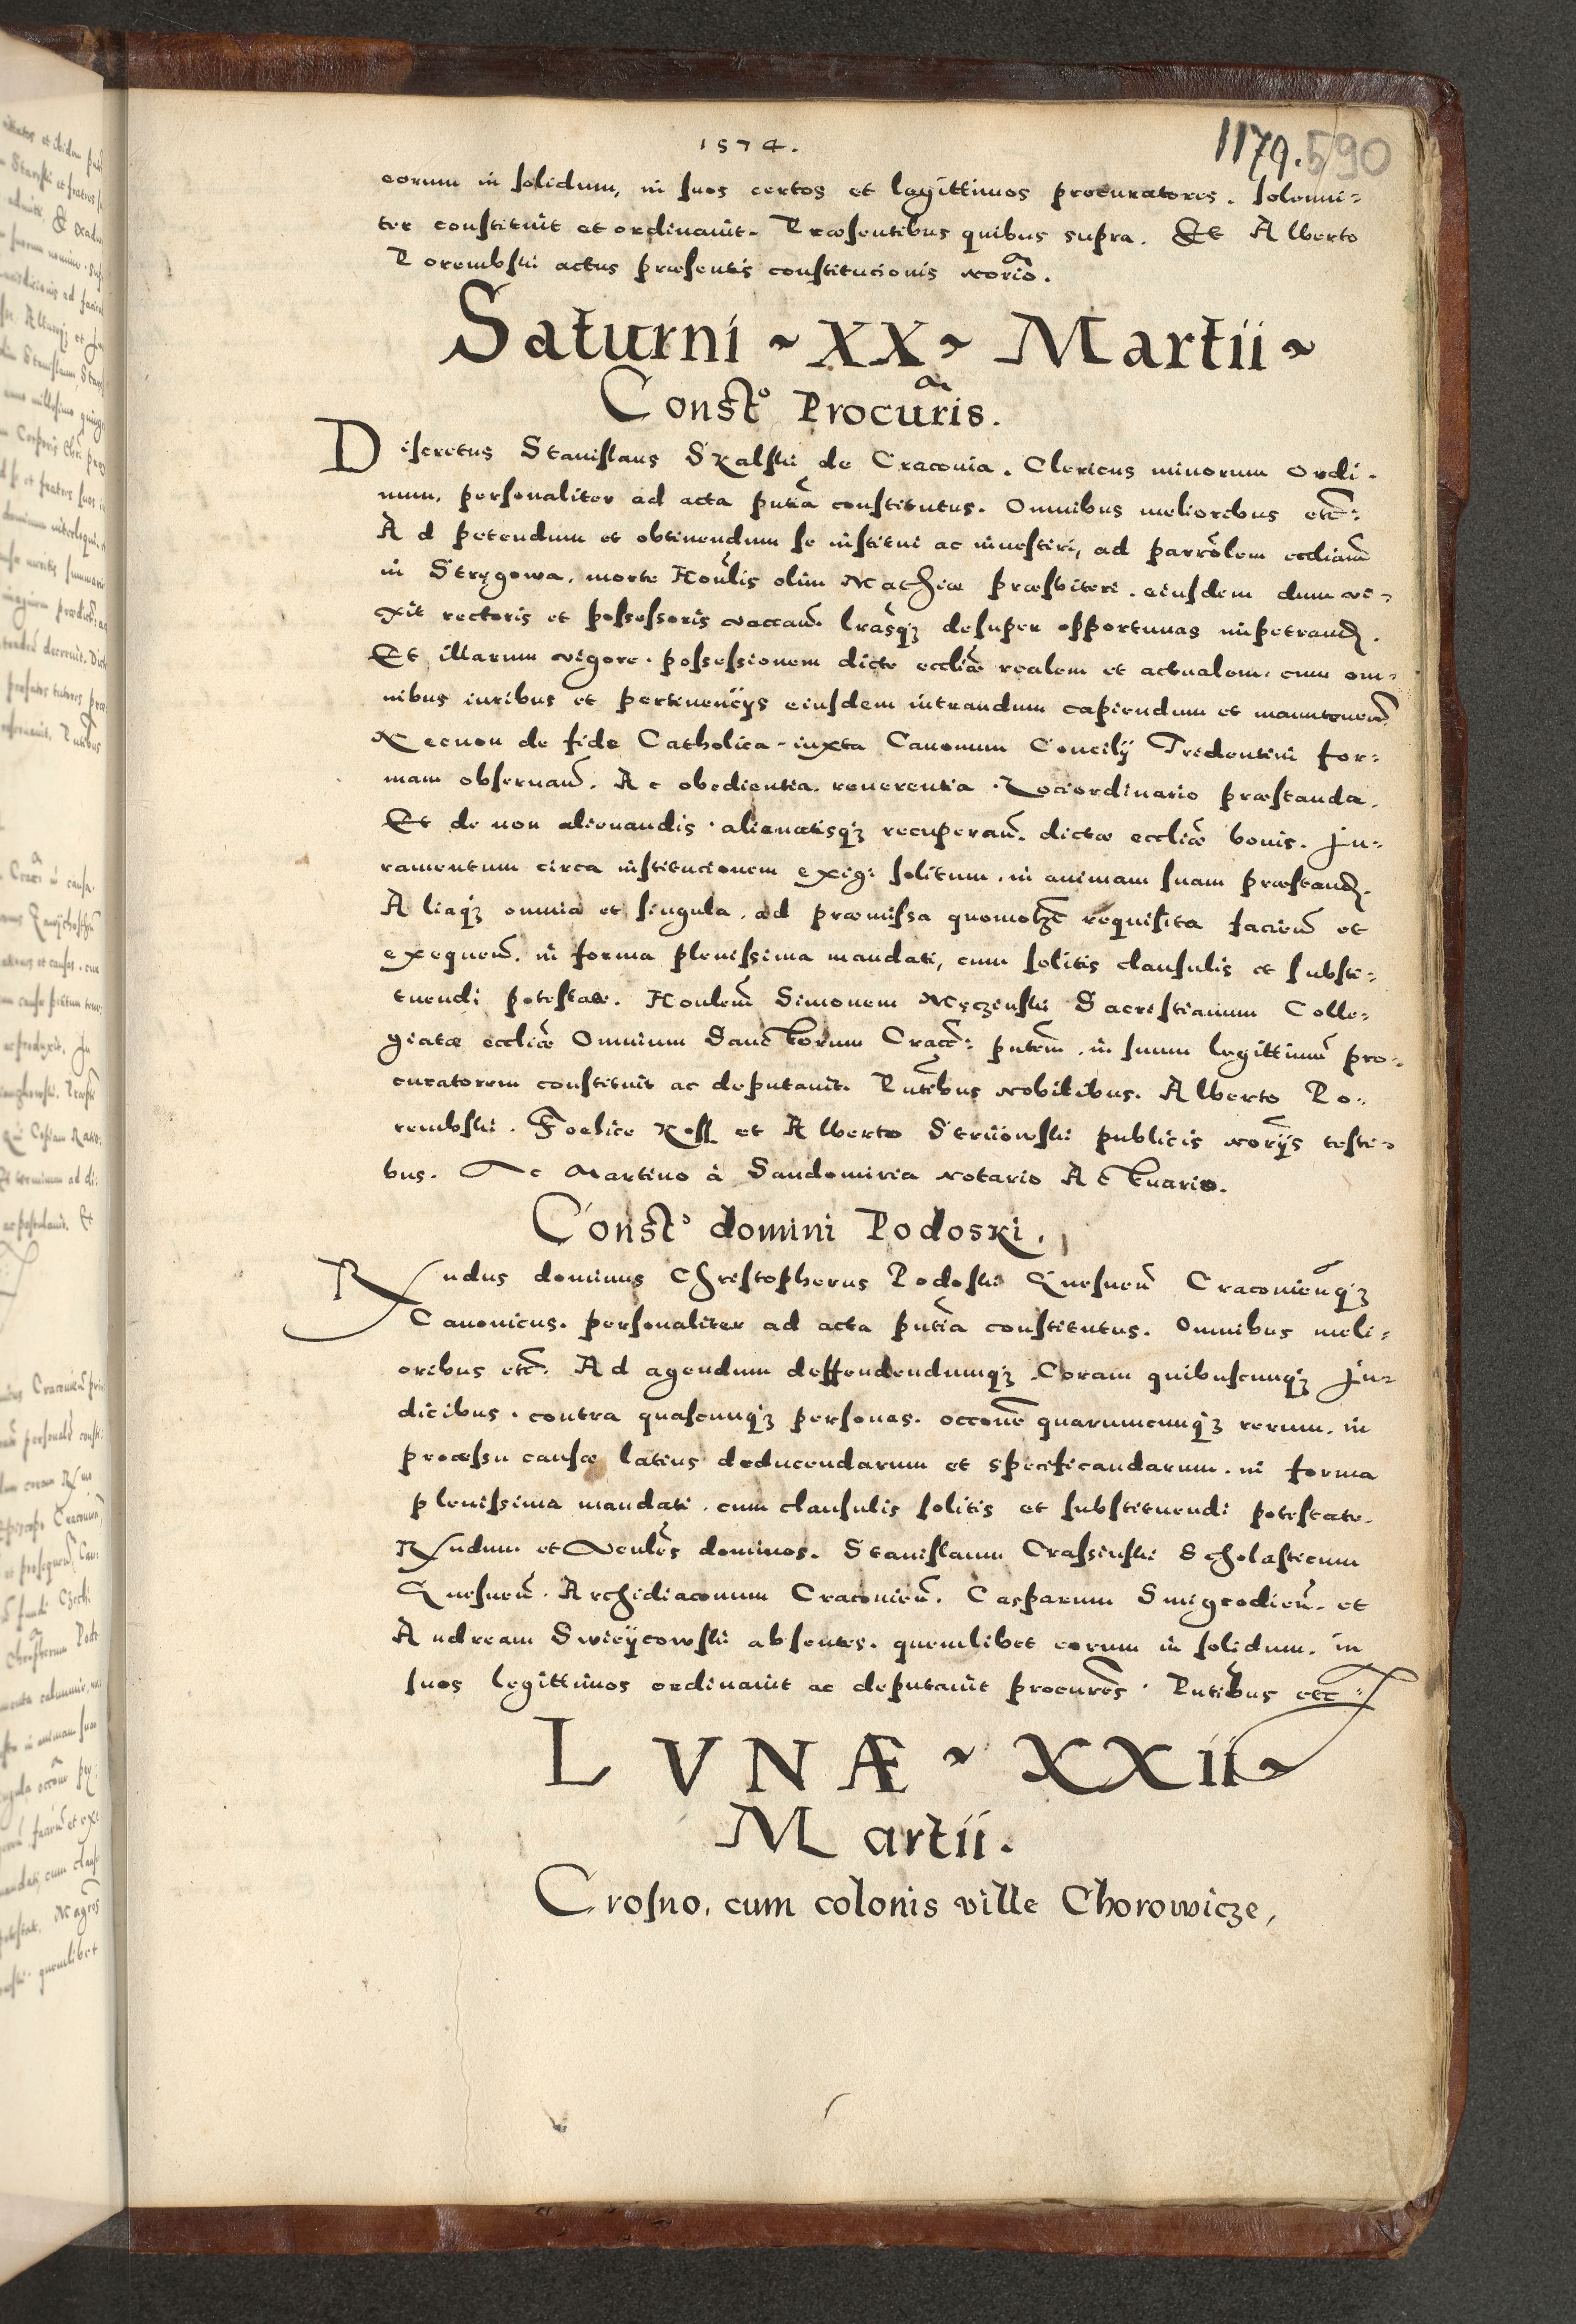 1574.
1179. 590
eorum in solidum, in suos certos et legittimos procuratores. solenni=
ter constituit et ordinauit. Præsentibus quibus supra. Et Alberto
Porembski actus præsentis constitucionis norio.
Saturni ~ XX ~ Martii ~
Constº Procuris.
Discretus Stanislaus Skalski de Cracouia. Clericus minorum ordi-
num, personaliter ad acta pntia constitutus. Omnibus melioribus etc:
Ad petendum et obtinendum se institui ac inuestiri, ad parrolem eccliam
in Stręgowa, morte Honlis olim Mathiæ præsbiteri. eiusdem dum vi=
xit rectoris et possessoris vaccan. lrasqz desuper opportunas impetrand.
Et illarum vigore. possessionem dictæ eccliæ realem et actualem. cum om=
nibus iuribus et pertinencijs eiusdem intrandum capiendum et manutenen.
Necnon de fide Catholica iuxta Canonum Concilij Tridentini for=
mam obseruan. Ac obedientia. reuerentia Lociordinario præstanda.
Et de non alienandis. alienatisqz recuperan. dictæ eccliæ bonis. Ju=
ramentum circa institucionem exigi solitum. in animam suam præstand.
Aliaqz omnia et singula. ad præmissa quomolzt requisita facien et
exequen. in forma plenissima mandati, cum solitis clausulis et substi=
tuendi potestate. Honlem Simonem Męczinski Sacristianum Colle=
giatæ eccliæ Omnium Sanctorum Cracc: pntem. in suum legittimum pro=
curatorem constituit ac deputauit. Pntibus nobilibus. Alberto Po=
rembski. Foelice Ross et Alberto Striiowski publicis norijs testi=
bus. Ac Martino à Sandomiria notario Actuario.
Constº domini Podoski.
Rndus dominus Christopherus Podoski Gnesnen Cracouienqz
Canonicus. personaliter ad acta pntia constitutus. Omnibus meli=
oribus etc. Ad agendum deffendendumqz Coram quibuscunqz Ju=
dicibus. contra quascunqz personas. occone quarumcunqz rerum. in
processu causæ latius deducendarum et specificandarum. in forma
plenissima mandati. cum clausulis solitis et substituendi potestate.
Rndum et Venles dominos. Stanislaum Crassinski Scholasticum
Gnesnen. Archidiaconum Cracouien. Casparum Smigrodien. et
Andream Swieÿcowski absentes. quemlibet eorum in solidum. in
suos legittimos ordinauit ac deputauit procures. Pntibus etc:
LVNÆ ~ XXii ~
Martii.
Crosno, cum colonis ville Chorowicze,